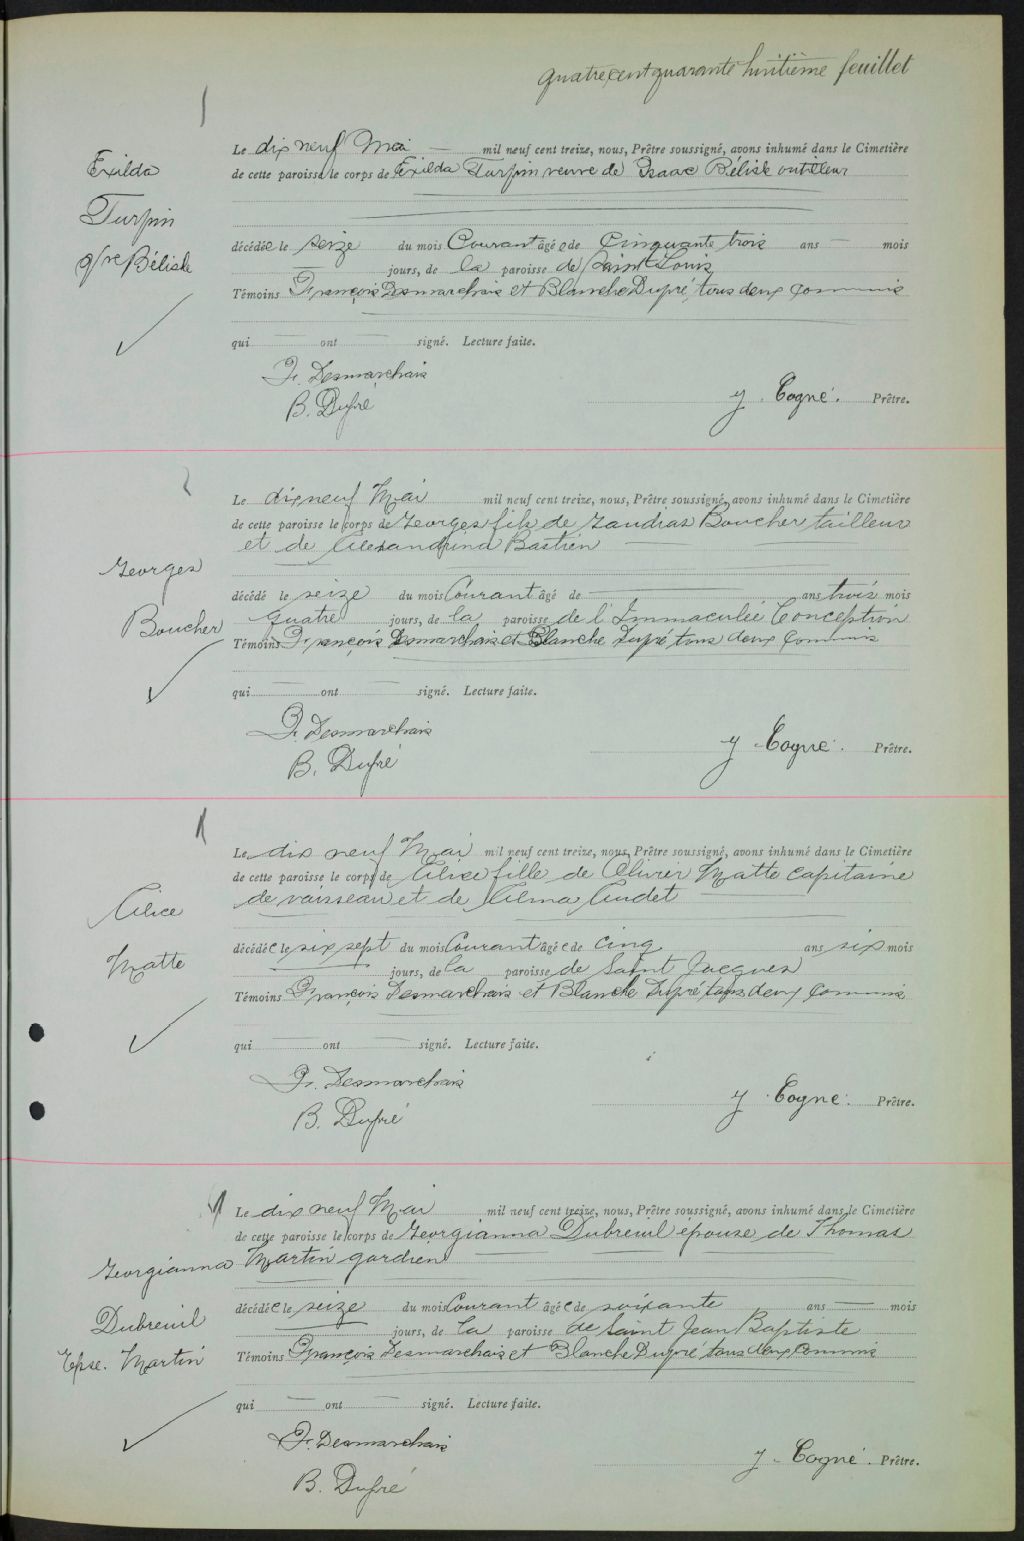 quatre cent quarante huitième feuillet
1
Exilda
Turpin
Vve Bélisle
Le dix neuf Mai — mil neuf cent treize, nous, Prêtre soussigné, avons inhumé dans le Cimetière
de cette paroisse le corps de Exilda Turpin veuve de Isaac Bélisle outilleur
décédée le seize du mois Courant âgée de Cinquante trois ans — mois
— jours, de la paroisse de Saint Louis
Témoins François Desmarchais et Blanche Dupré, tous deux Commis
qui — ont — signé. Lecture faite.
Fr. Desmarchais
B. Dupré
J. Cogné. Prêtre.
2
Georges
Boucher
Le dix neuf Mai mil neuf cent treize, nous, Prêtre soussigné, avons inhumé dans le Cimetière
de cette paroisse le corps de Georges fils de Zaudias Boucher tailleur
et de Alexandrina Bastien
décédé le seize du mois Courant âgé de — ans trois mois
quatre jours, de la paroisse de l'Immaculée Conception
Témoins François Desmarchais et Blanche Dupré tous deux Commis
qui — ont — signé. Lecture faite.
Fr. Desmarchais
B. Dupré
J. Cogné. Prêtre.
Alice
Matte
Le dix neuf Mai mil neuf cent treize, nous, Prêtre soussigné, avons inhumé dans le Cimetière
de cette paroisse le corps de Alice fille de Olivier Matte capitaine
de vaisseau et de Alma Audet
décédée le six sept du mois Courant âgée de cinq ans six mois
— jours, de la paroisse de Saint Jacques
Témoins François Desmarchais et Blanche Dupré tous deux Commis
qui — ont — signé. Lecture faite.
Fr. Desmarchais
B. Dupré
J. Cogné. Prêtre.
Georgianna
Dubreuil
Epse. Martin
Le dix neuf Mai mil neuf cent treize, nous, Prêtre soussigné, avons inhumé dans le Cimetière
de cette paroisse le corps de Georgianna Dubreuil épouse de Thomas
Martin gardien
décédée le seize du mois Courant âgée de soixante ans — mois
— jours, de la paroisse de Saint Jean Baptiste
Témoins François Desmarchais et Blanche Dupré tous deux Commis
qui — ont — signé. Lecture faite.
Fr. Desmarchais
B. Dupré
J. Cogné. Prêtre.